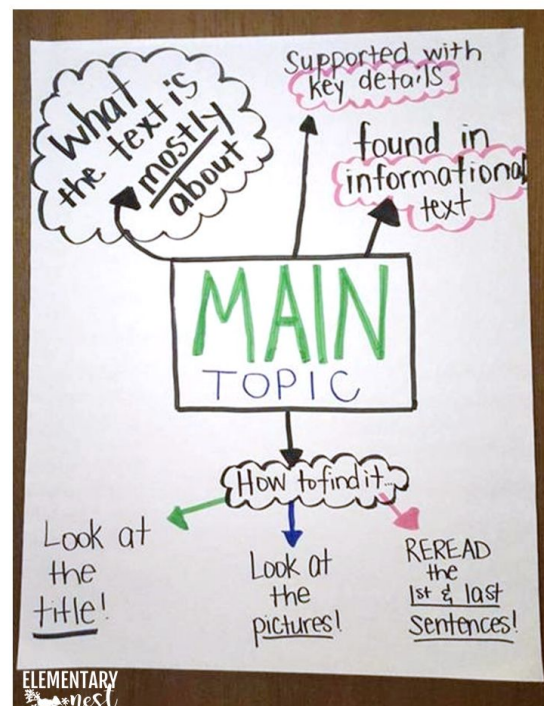 What
the text is
mostly
about
Supported with
key details
found in
informational
text
MAIN
TOPIC
How to find it...
Look at
the
title!
Look at
the
pictures!
REREAD
the
1st & last
sentences!
ELEMENTARY
nest